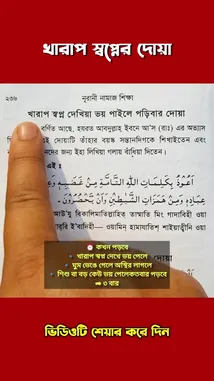 খারাপ স্বপ্নের দোয়া
২৩৬
নূরানী নামাজ শিক্ষা
খারাপ স্বপ্ন দেখিয়া ভয় পাইলে পড়িবার দোয়া
বর্ণিত আছে, হযরত আবদুল্লাহ ইবনে আ'স (রাঃ) এর অভ্যাস
এই দোয়াটি তাঁহার বয়স্ক সন্তানদিগকে শিখাইতেন এবং
নদের জন্য ইহা লিখিয়া গলায় বাঁধিয়া দিতেন।
এই :
أَعُوْذُ بِكَلِمَاتِ اللّٰهِ التَّامَّةِ مِنْ غَضَبِهٖ
عِبَادِهٖ وَمِنْ هَمَزَاتِ الشَّيٰطِيْنِ وَاَنْ يَّحْضُرُوْنَ.
আউ'যু বিকালিমাতিল্লাহিত তাম্মাতি মিন গাদাবিহী ওয়া
ই'বাদিহী— ওয়ামিন্ হামাযাতিশ্ শাইয়াত্বীনি ওয়া
কখন পড়বে
খারাপ স্বপ্ন দেখে ভয় পেলে
ঘুম ভেঙে গেলে অস্থির লাগলে
শিশু বা বড় কেউ ভয় পেলেকতবার পড়বে
৩ বার
ভিডিওটি শেয়ার করে দিন